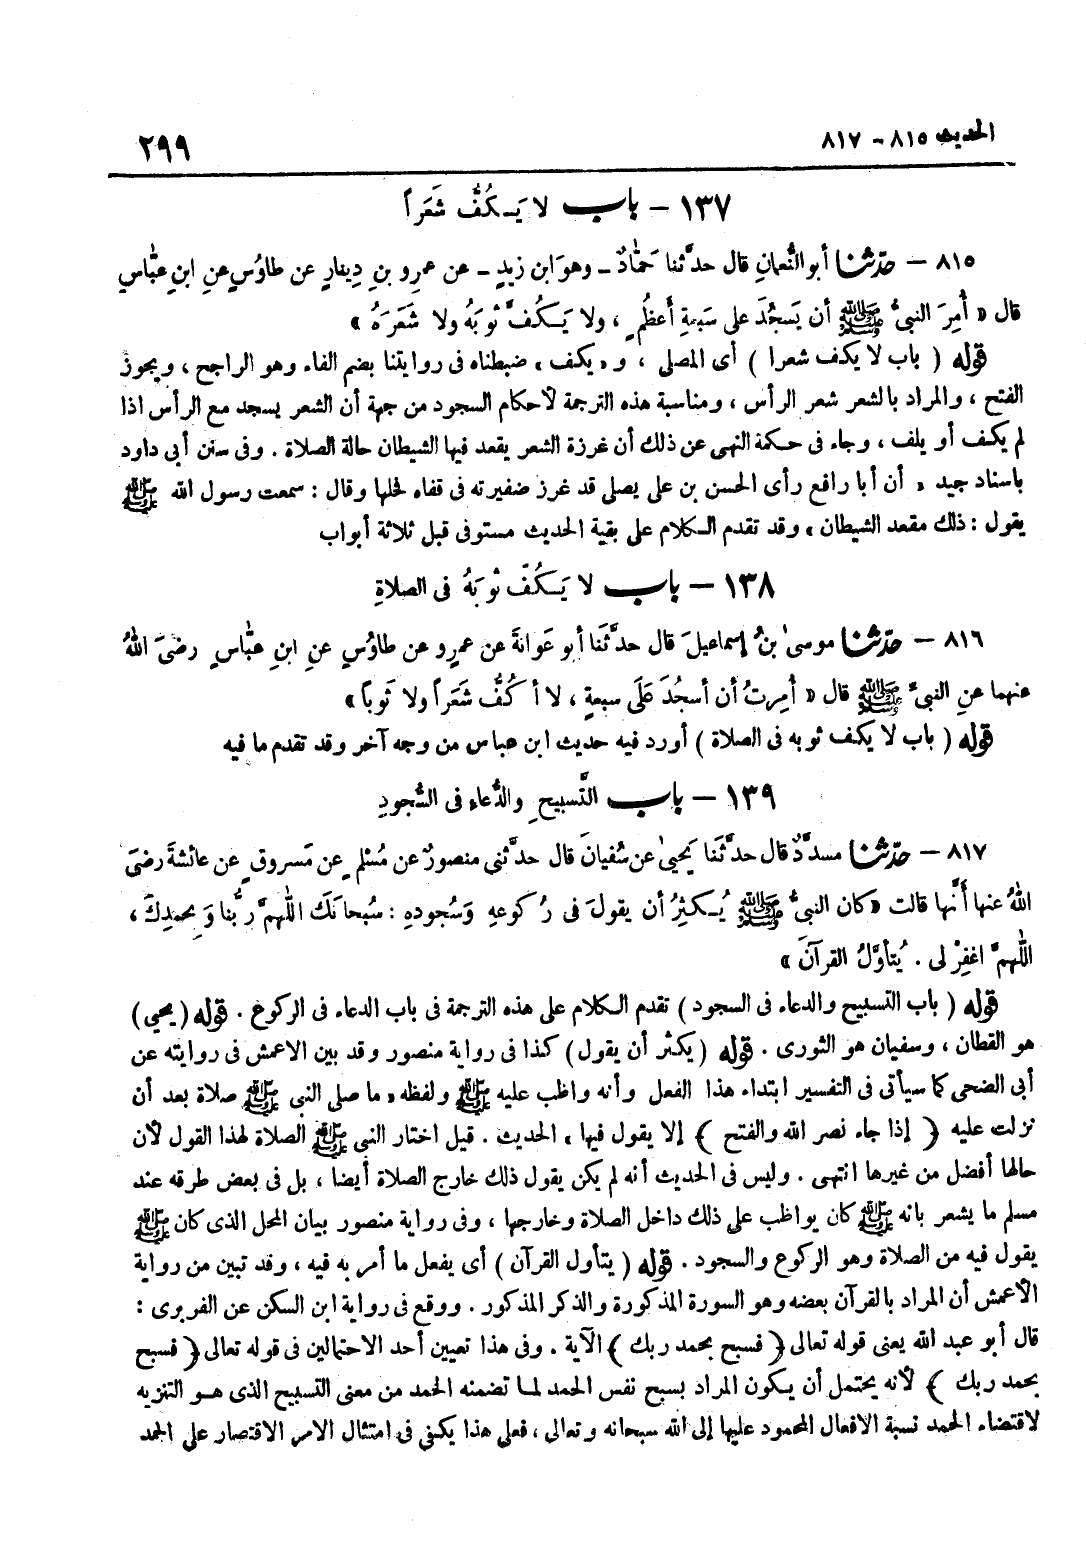 الحديث ٨١٥ - ٨١٧
٢٩٩
١٣٧ - باب لا يَكُفُّ شَعَراً
٨١٥ - حدّثنا أبو النُّعمانِ قال حدَّثنا حَمّادٌ - وهوَ ابن زيدٍ - عن عمرِو بنِ دِينارٍ عن طاوُسٍ عنِ ابنِ عبّاسٍ
قال « أُمِرَ النبيُّ ﷺ أن يَسجُدَ على سَبعةِ أَعظُمٍ ، ولا يَكُفَّ ثوبَهُ ولا شَعَرَهُ »
قوله ( باب لا يكف شعرا ) أى المصلى ، و « يكف » ضبطناه فى روايتنا بضم الفاء وهو الراجح ، ويجوز
الفتح ، والمراد بالشعر شعر الرأس ، ومناسبة هذه الترجمة لأحكام السجود من جهة أن الشعر يسجد مع الرأس اذا
لم يكف أو يلف ، وجاء فى حكمة النهى عن ذلك أن غرزة الشعر يقعد فيها الشيطان حالة الصلاة . وفى سنن أبى داود
باسناد جيد « أن أبا رافع رأى الحسن بن على يصلى قد غرز ضفيرته فى قفاه فحلها وقال : سمعت رسول الله ﷺ
يقول : ذلك مقعد الشيطان » وقد تقدم الكلام على بقية الحديث مستوفى قبل ثلاثة أبواب
١٣٨ - باب لا يَكُفّ ثوبَهُ فى الصلاةِ
٨١٦ - حدّثنا موسىٰ بنُ إسماعيلَ قال حدَّثَنا أبو عَوانةَ عن عمرٍو عن طاوُسٍ عنِ ابنِ عبّاسٍ رضىَ اللهُ
عنهما عنِ النبىِّ ﷺ قال « أُمِرتُ أن أسجُدَ عَلَى سبعةٍ ، لا أكُفُّ شَعَراً ولا ثَوباً »
قوله ( باب لا يكف ثوبه فى الصلاة ) أورد فيه حديث ابن عباس من وجه آخر وقد تقدم ما فيه
١٣٩ - باب التَّسبيحِ والدُّعاءِ فى السُّجودِ
٨١٧ - حدّثنا مسدَّدٌ قال حدَّثَنا يَحيىٰ عن سُفيانَ قال حدَّثنى منصورٌ عن مُسْلمٍ عن مَسروقٍ عن عائشةَ رضىَ
اللهُ عنها أنَّها قالت « كان النبىُّ ﷺ يُكثِرُ أن يقولَ فى رُكوعهِ وَسُجودهِ : سُبحانَكَ اللّهمَّ ربَّنا وَبحمدِكَ ،
اللّهمَّ اغفِرْ لى . يُتأوَّلُ القرآنَ »
قوله ( باب التسبيح والدعاء فى السجود ) تقدم الكلام على هذه الترجمة فى باب الدعاء فى الركوع . قوله ( يحيى )
هو القطان ، وسفيان هو الثورى . قوله ( يكثر أن يقول ) كذا فى رواية منصور وقد بين الاعمش فى روايته عن
أبى الضحى كما سيأتى فى التفسير ابتداء هذا الفعل وأنه واظب عليه ﷺ ولفظه « ما صلى النبى ﷺ صلاة بعد أن
نزلت عليه ﴿ إذا جاء نصر الله والفتح ﴾ إلا يقول فيها » الحديث . قيل اختار النبى ﷺ الصلاة لهذا القول لأن
حالها أفضل من غيرها انتهى . وليس فى الحديث أنه لم يكن يقول ذلك خارج الصلاة أيضا ، بل فى بعض طرقه عند
مسلم ما يشعر بانه ﷺ كان يواظب على ذلك داخل الصلاة وخارجها ، وفى رواية منصور بيان المحل الذى كان ﷺ
يقول فيه من الصلاة وهو الركوع والسجود . قوله ( يتأول القرآن ) أى يفعل ما أمر به فيه ، وقد تبين من رواية
الأعمش أن المراد بالقرآن بعضه وهو السورة المذكورة والذكر المذكور . ووقع فى رواية ابن السكن عن الفربرى :
قال أبو عبد الله يعنى قوله تعالى ﴿ فسبح بحمد ربك ﴾ الآية . وفى هذا تعيين أحد الاحتمالين فى قوله تعالى ﴿ فسبح
بحمد ربك ﴾ لأنه يحتمل أن يكون المراد بسبح نفس الحمد لما تضمنه الحمد من معنى التسبيح الذى هو التنزيه
لاقتضاء الحمد نسبة الافعال المحمود عليها إلى الله سبحانه وتعالى ، فعلى هذا يكفى فى امتثال الامر الاقتصار على الحمد